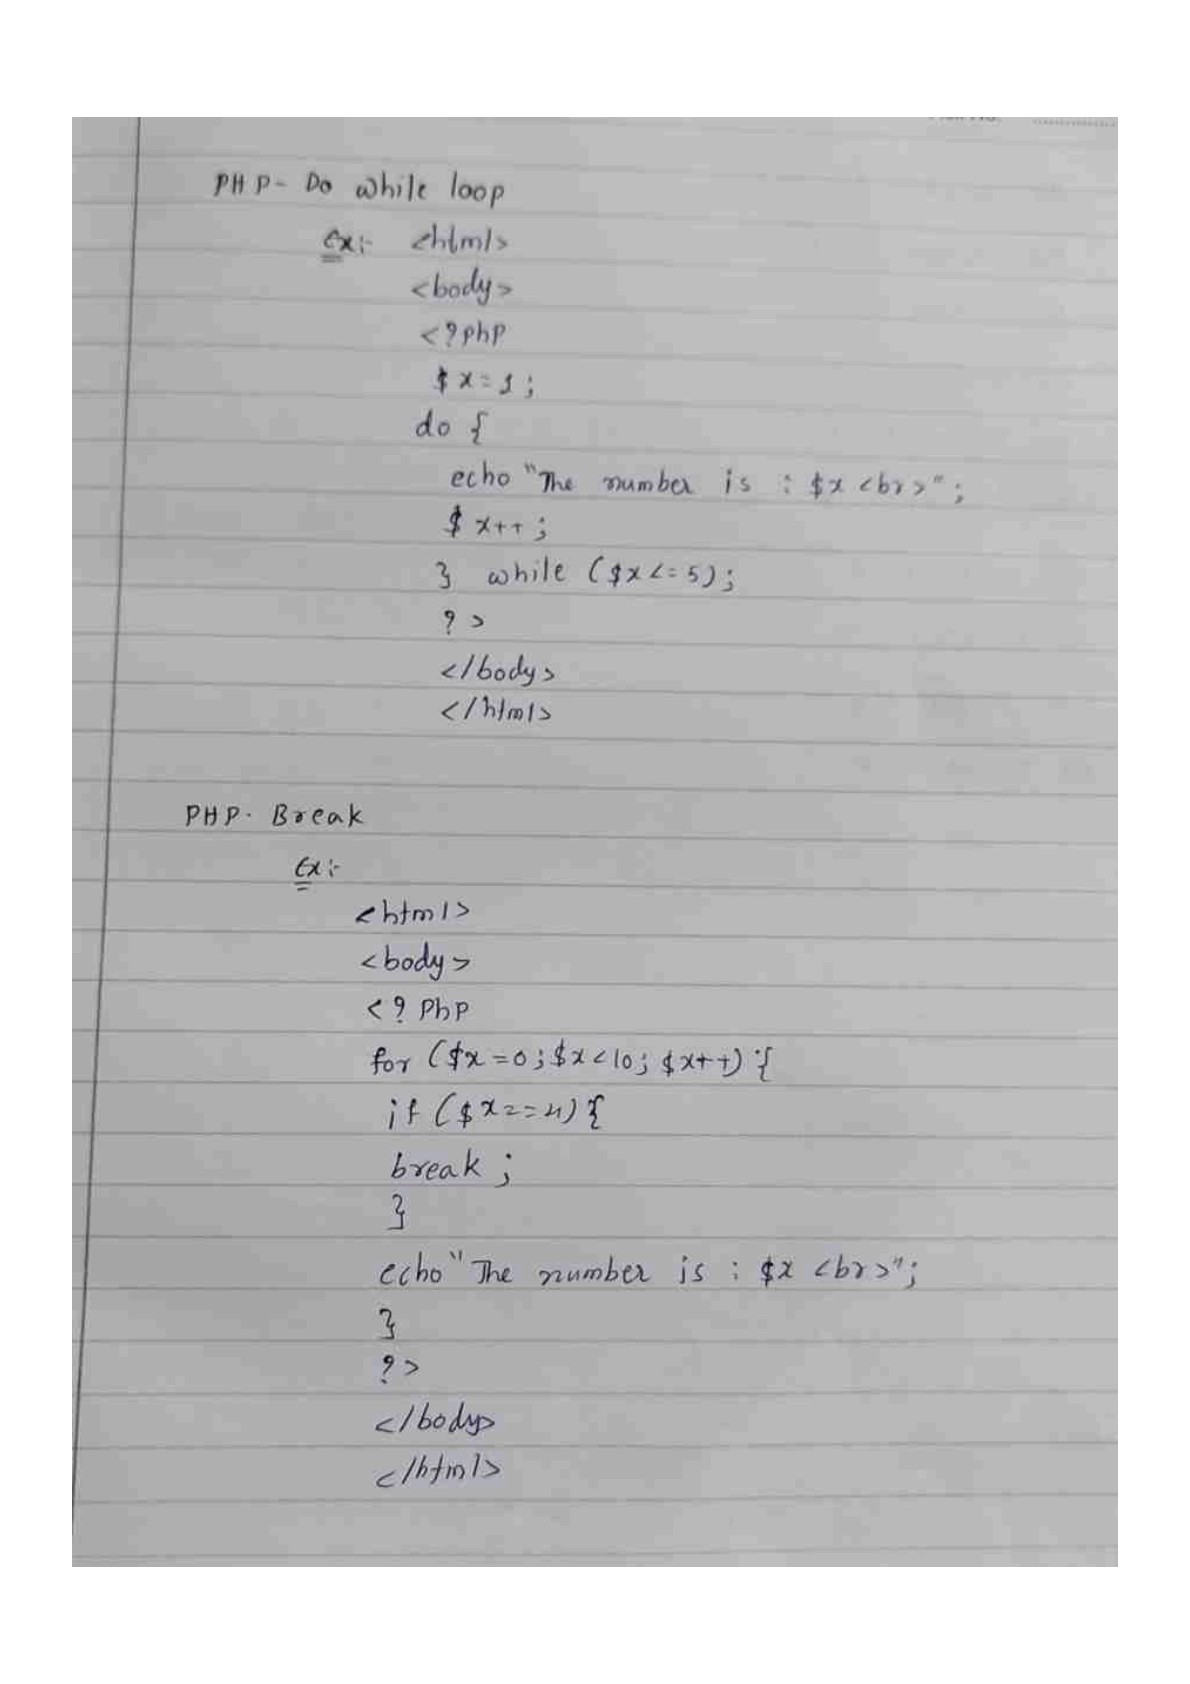 PHP- Do while loop
Ex:- <html>
<body>
<?php
$x=1;
do {
echo "The number is : $x <br>";
$x++;
} while ($x<=5);
?>
</body>
</html>
PHP- Break
Ex:-
<html>
<body>
<? Php
for ($x=0; $x<10; $x++) {
if ($x==4) {
break;
}
echo "The number is : $x <br>";
}
?>
</body>
</html>